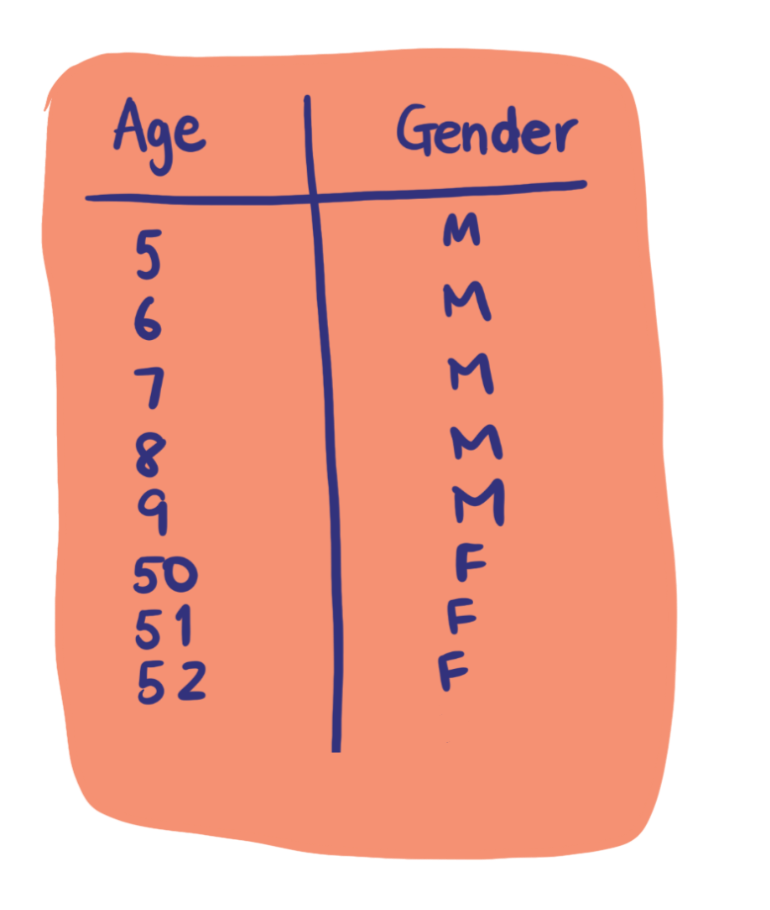 Age Gender
5 M
6 M
7 M
8 M
9 M
50 F
51 F
52 F